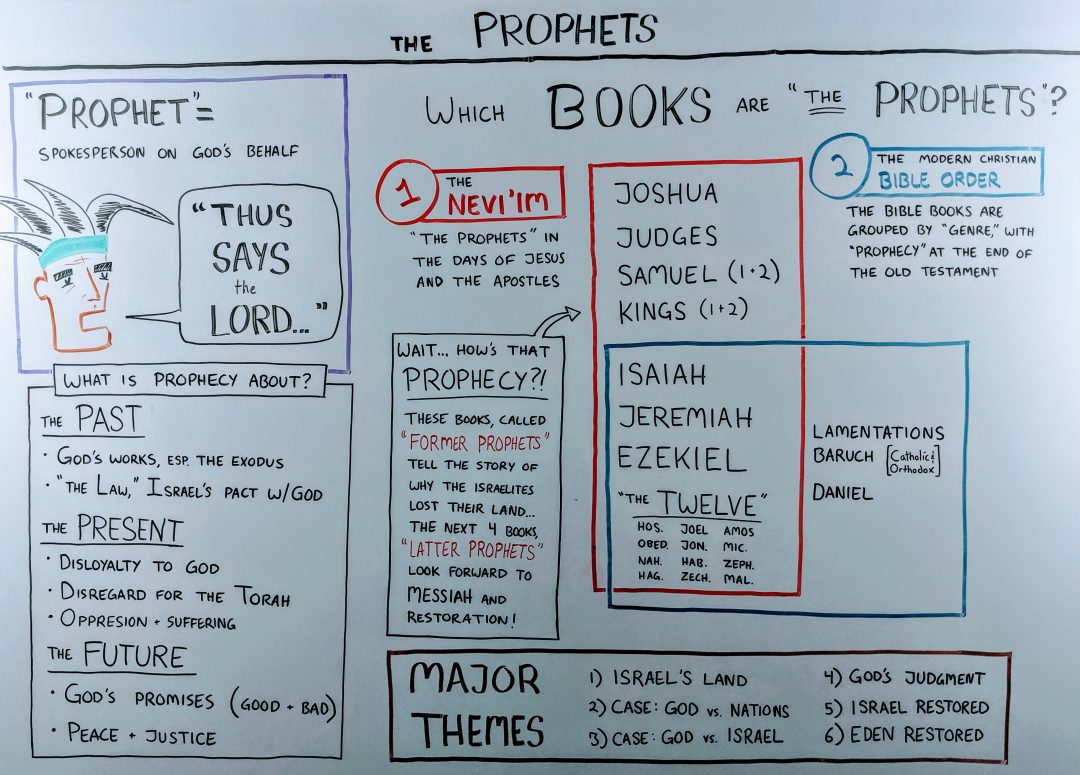 THE PROPHETS
"PROPHET"=
SPOKESPERSON ON GOD'S BEHALF
"THUS
SAYS
the
LORD..."
WHAT IS PROPHECY ABOUT?
THE PAST
· GOD'S WORKS, ESP. THE EXODUS
· "THE LAW," ISRAEL'S PACT W/GOD
THE PRESENT
· DISLOYALTY TO GOD
· DISREGARD FOR THE TORAH
· OPPRESION + SUFFERING
THE FUTURE
· GOD'S PROMISES (GOOD + BAD)
· PEACE + JUSTICE
WHICH BOOKS ARE "THE PROPHETS"?
1 THE
NEVI'IM
"THE PROPHETS" IN
THE DAYS OF JESUS
AND THE APOSTLES
WAIT... HOW'S THAT
PROPHECY?!
THESE BOOKS, CALLED
"FORMER PROPHETS"
TELL THE STORY OF
WHY THE ISRAELITES
LOST THEIR LAND...
THE NEXT 4 BOOKS,
"LATTER PROPHETS"
LOOK FORWARD TO
MESSIAH AND
RESTORATION!
JOSHUA
JUDGES
SAMUEL (1+2)
KINGS (1+2)
ISAIAH
JEREMIAH
EZEKIEL
"THE TWELVE"
HOS. JOEL AMOS
OBED. JON. MIC.
NAH. HAB. ZEPH.
HAG. ZECH. MAL.
2 THE MODERN CHRISTIAN
BIBLE ORDER
THE BIBLE BOOKS ARE
GROUPED BY "GENRE," WITH
"PROPHECY" AT THE END OF
THE OLD TESTAMENT
LAMENTATIONS
BARUCH [Catholic &
Orthodox]
DANIEL
MAJOR
THEMES
1) ISRAEL'S LAND
2) CASE: GOD vs. NATIONS
3) CASE: GOD vs. ISRAEL
4) GOD'S JUDGMENT
5) ISRAEL RESTORED
6) EDEN RESTORED